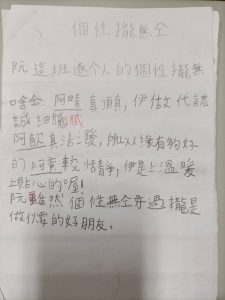 個性攏無仝
阮這班逐个人的個性攏無
啥仝 阿晴真頂真,伊做代誌
誠細膩
阿歆真活潑,所以人緣有夠好
的 阿黃較恬靜,伊是上溫暖
上貼心的喔!
阮雖然個性無仝毋過攏是
做伙耍的好朋友。